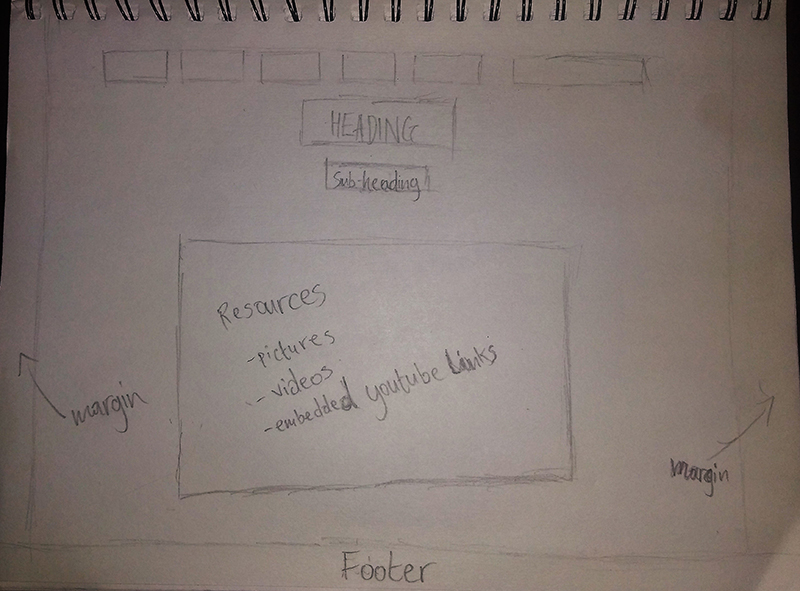 HEADING
Sub-heading
Resources
-pictures
- videos
-embedded youtube Links
margin
margin
Footer